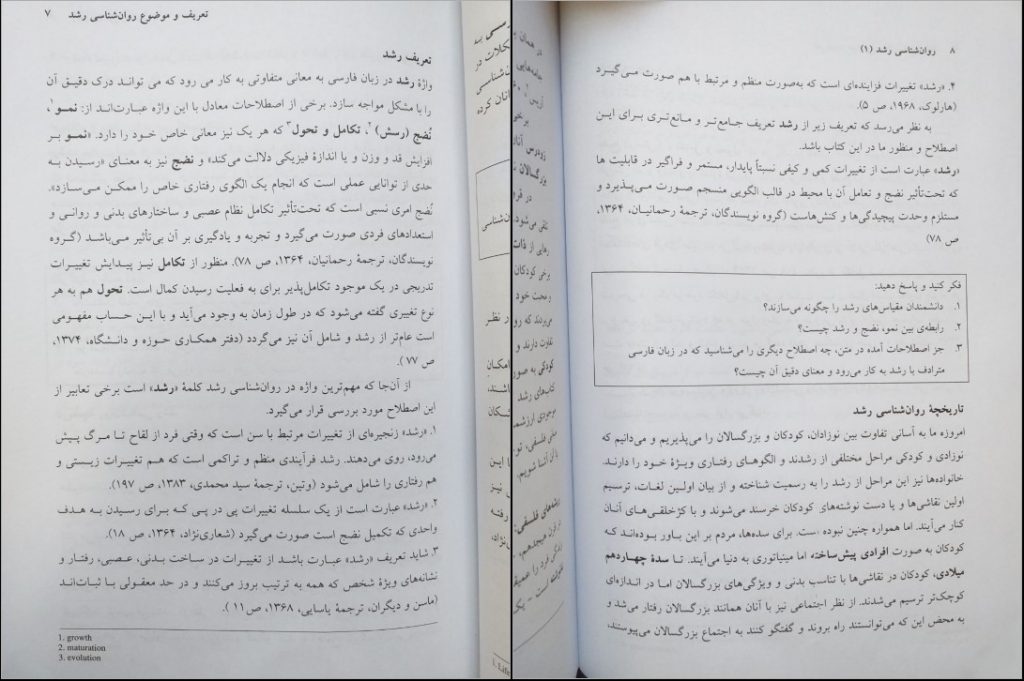 تعریف و موضوع روان‌شناسی رشد ۷
تعریف رشد
واژهٔ رشد در زبان فارسی به معانی متفاوتی به کار می رود که می تواند درک دقیق آن
را با مشکل مواجه سازد. برخی از اصطلاحات معادل با این واژه عبارت‌اند از: نمو۱،
نُضج (رسش)۲، تکامل و تحول۳ که هر یک نیز معانی خاص خود را دارد. «نمو بر
افزایش قد و وزن و یا اندازهٔ فیزیکی دلالت می‌کند» و نضج نیز به معنای «رسیدن به
حدی از توانایی عملی است که انجام یک الگوی رفتاری خاص را ممکن می‌سازد».
نُضج امری نسبی است که تحت‌تأثیر تکامل نظام عصبی و ساختارهای بدنی و روانی و
استعدادهای فردی صورت می‌گیرد و تجربه و یادگیری بر آن بی‌تأثیر می‌باشد (گروه
نویسندگان، ترجمهٔ رحمانیان، ۱۳۶۴، ص ۷۸). منظور از تکامل نیز پیدایش تغییرات
تدریجی در یک موجود تکامل‌پذیر برای به فعلیت رسیدن کمال است. تحول هم به هر
نوع تغییری گفته می‌شود که در طول زمان به وجود می‌آید و با این حساب مفهومی
است عام‌تر از رشد و شامل آن نیز می‌گردد (دفتر همکاری حوزه و دانشگاه، ۱۳۷۴،
ص ۷۷).
از آن‌جا که مهم‌ترین واژه در روان‌شناسی رشد کلمهٔ «رشد» است برخی تعابیر از
این اصطلاح مورد بررسی قرار می‌گیرد.
۱. «رشد» زنجیره‌ای از تغییرات مرتبط با سن است که وقتی فرد از لقاح تا مرگ پیش
می‌رود، روی می‌دهند. رشد فرآیندی منظم و تراکمی است که هم تغییرات زیستی و
هم رفتاری را شامل می‌شود (وتین، ترجمهٔ سید محمدی، ۱۳۸۳، ص ۱۹۷).
۲. «رشد» عبارت است از یک سلسله تغییرات پی در پی که برای رسیدن به هدف
واحدی که تکمیل نضج است صورت می‌گیرد (شعاری‌نژاد، ۱۳۶۴، ص ۱۸).
۳. شاید تعریف «رشد» عبارت باشد از تغییرات در ساخت بدنی، عصبی، رفتار و
نشانه‌های ویژهٔ شخص که همه به ترتیب بروز می‌کنند و در حد معقولی با ثبات‌اند
(ماسن و دیگران، ترجمهٔ یاسایی، ۱۳۶۸، ص ۱۱).
1. growth
2. maturation
3. evolation
۸ روان‌شناسی رشد (۱)
۴. «رشد» تغییرات فزاینده‌ای است که به‌صورت منظم و مرتبط با هم صورت می‌گیرد
(هارلوک، ۱۹۶۸، ص ۵).
به نظر می‌رسد که تعریف زیر از رشد تعریف جامع‌تر و مانع‌تری برای این
اصطلاح و منظور ما در این کتاب باشد.
«رشد» عبارت است از تغییرات کمی و کیفی نسبتاً پایدار، مستمر و فراگیر در قابلیت ها
که تحت‌تأثیر نضج و تعامل آن با محیط در قالب الگویی منسجم صورت می‌پذیرد و
مستلزم وحدت پیچیدگی‌ها و کنش‌هاست (گروه نویسندگان، ترجمهٔ رحمانیان، ۱۳۶۴،
ص ۷۸)
فکر کنید و پاسخ دهید:
۱. دانشمندان مقیاس‌های رشد را چگونه می‌سازند؟
۲. رابطه‌ی بین نمو، نضج و رشد چیست؟
۳. جز اصطلاحات آمده در متن، چه اصطلاح دیگری را می‌شناسید که در زبان فارسی
مترادف با رشد به کار می‌رود و معنای دقیق آن چیست؟
تاریخچهٔ روان‌شناسی رشد
امروزه ما به آسانی تفاوت بین نوزادان، کودکان و بزرگسالان را می‌پذیریم و می‌دانیم که
نوزادی و کودکی مراحل مختلفی از رشدند و الگوهای رفتاری ویژهٔ خود را دارند.
خانواده‌ها نیز این مراحل از رشد را به رسمیت شناخته و از بیان اولین لغات، ترسیم
اولین نقاشی‌ها و یا دست نوشته‌های کودکان خرسند می‌شوند و با کژخلقی‌های آنان
کنار می‌آیند. اما همواره چنین نبوده است. برای سده‌ها، مردم بر این باور بوده‌اند که
کودکان به صورت افرادی پیش‌ساخته، اما مینیاتوری به دنیا می‌آیند. تا سدهٔ چهاردهم
میلادی، کودکان در نقاشی‌ها با تناسب بدنی و ویژگی‌های بزرگسالان اما در اندازه‌ای
کوچک‌تر ترسیم می‌شدند. از نظر اجتماعی نیز با آنان همانند بزرگسالان رفتار می‌شد و
به محض این که می‌توانستند راه بروند و گفتگو کنند به اجتماع بزرگسالان می‌پیوستند،